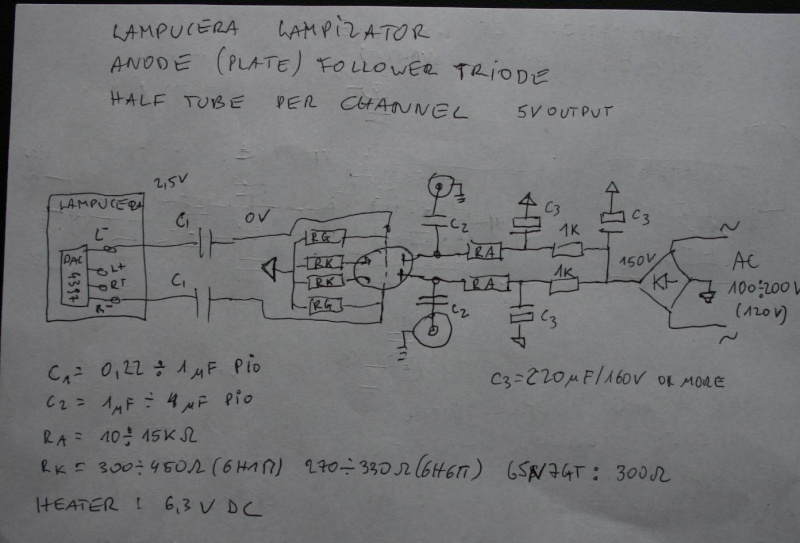 LAMPUCERA LAMPIZATOR
ANODE (PLATE) FOLLOWER TRIODE
HALF TUBE PER CHANNEL 5V OUTPUT
2,5V
LAMPUCERA
L-
DAC
L+
R+
R-
C1
C1
0V
RG
RK
RK
RG
C2
C2
RA
RA
C3
C3
C3
1K
1K
150V
AC
100÷200V
(120V)
~
~
C1 = 0,22 ÷ 1µF PIO
C2 = 1µF ÷ 4µF PIO
RA = 10÷15KΩ
RK = 300÷450Ω (6H1Π) 270÷330Ω (6H6Π) 6SN7GT: 300Ω
HEATER : 6,3V DC
C3 = 220µF/160V OR MORE